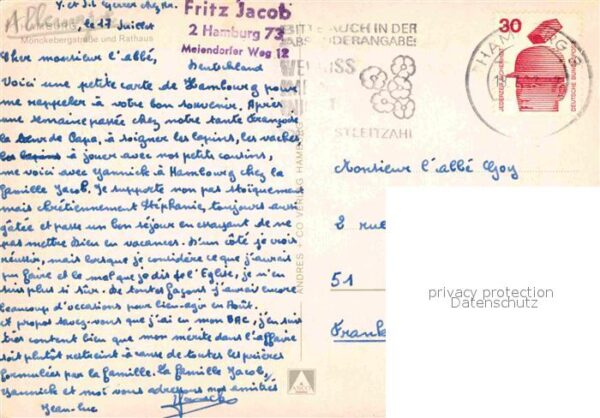 Allemagne
Hamburg, le 17 Juillet
Mönckebergstraße und Rathaus
Fritz Jacob
2 Hamburg 73
Meiendorfer Weg 12
Deutschland
BITTE AUCH IN DER
ABSENDERANGABE:
POSTLEITZAHL
HAMBURG
30
JEDERZEIT SICHERHEIT
DEUTSCHE BUNDESPOST
Cher monsieur l'abbé,
Voici une petite carte de Hambourg pour
me rappeler à votre bon souvenir. Après
une semaine passée chez notre tante Françoise
la sœur de Papa, à soigner les lapins, les vaches
les lapins à jouer avec nos petits cousins,
me voici avec Yannick à Hambourg chez la
famille Jacob. Je supporte non pas stoïquement
mais chrétiennement Stéphanie, toujours aussi
gâtée et passe un bon séjour en essayant de ne
pas mettre Dieu en vacances. D'un côté je crois
réussir, mais lorsque je considère ce que j'aurais
pu faire et le mal que je dis de l'Eglise, je n'en
suis plus si sûr. De toutes façons j'aurai encore
beaucoup d'occasions pour bien agir en Août.
A propos savez-vous que j'ai eu mon BAC, j'en suis
très content bien que mon mérite dans l'affaire
soit plutôt restreint à cause de toutes les prières
formulées par la famille. La famille Jacob,
Yannick et moi vous adressons nos amitiés
Jean-luc
Yannick
ANDRES + CO VERLAG HAMBURG
Monsieur l'abbé Goy
2 rue
51
Frank
privacy protection
Datenschutz